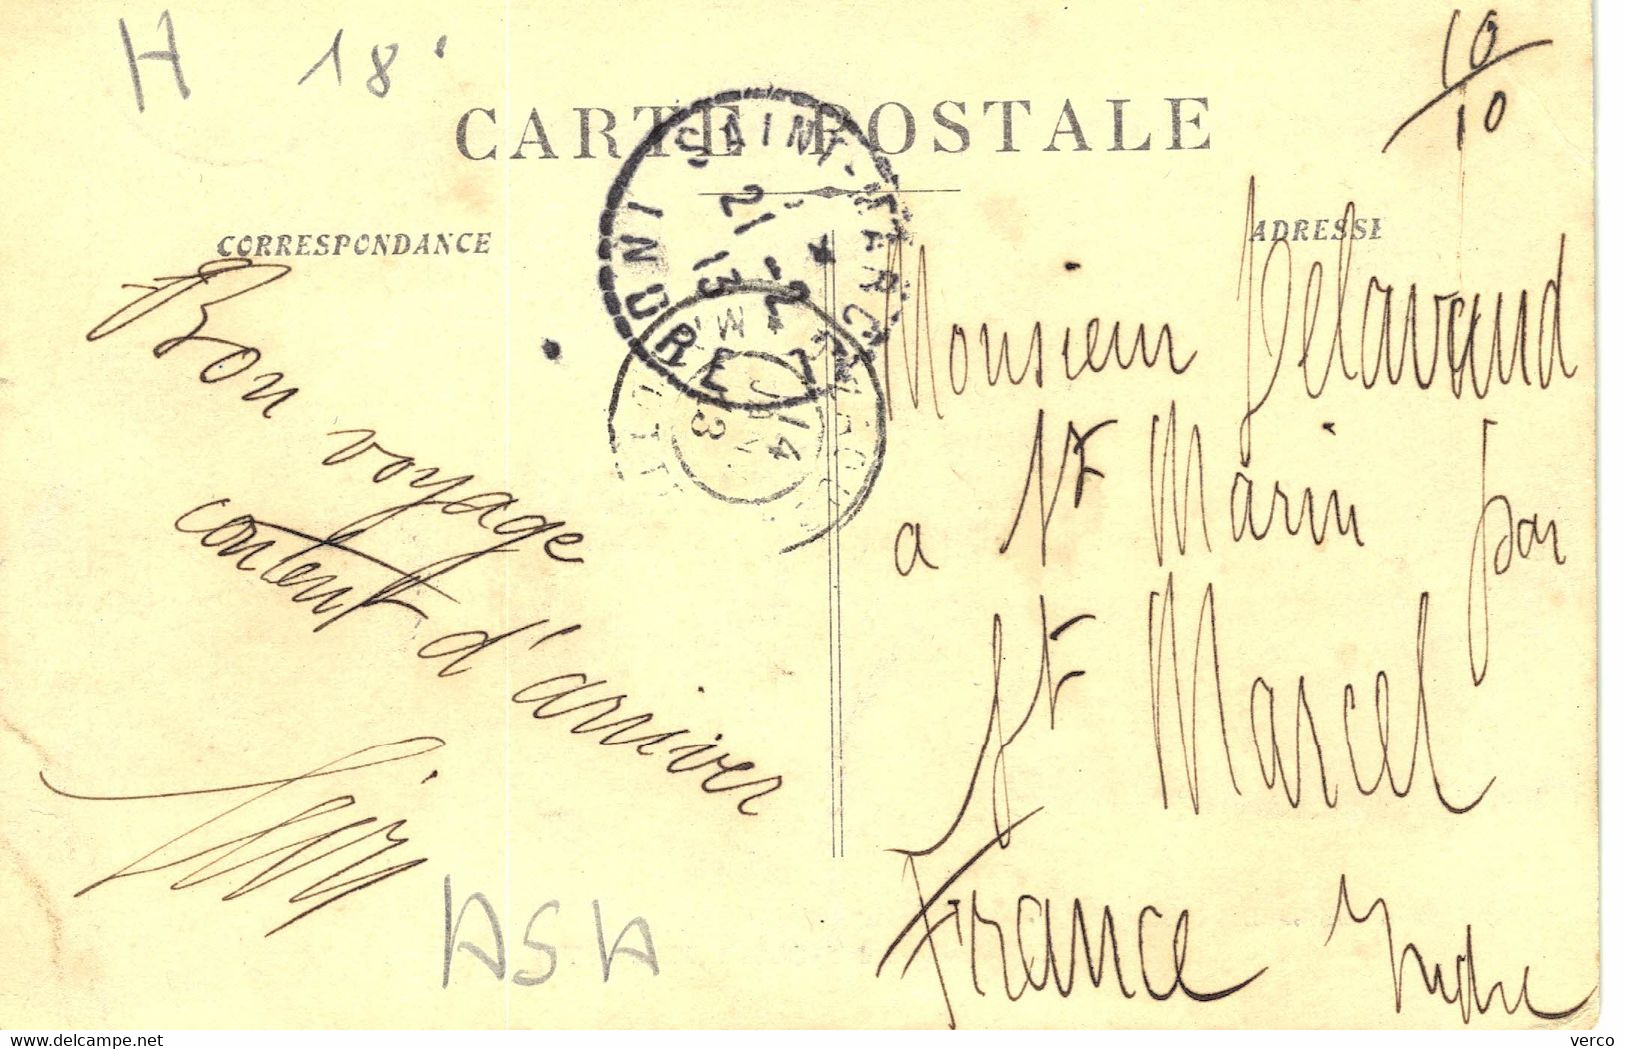 H 18
10/10
CARTE POSTALE
CORRESPONDANCE
ADRESSE
SAINT-MARCEL
21 -2
13
INDRE
14
13
Bon voyage
content d'arriver
Monsieur Delavaud
a St Marin par
St Marcel
France Indre
ASIA
delcampe.net
verco